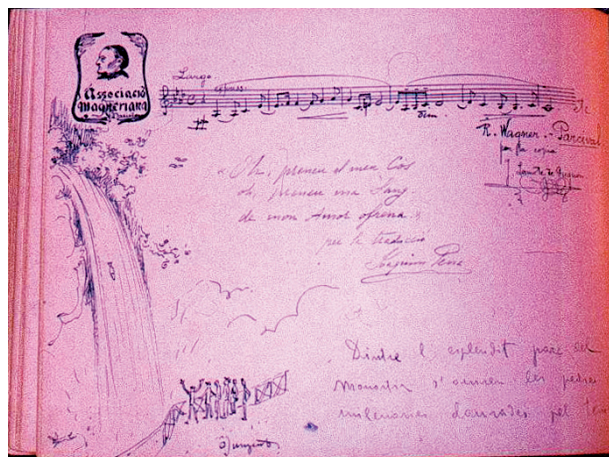 Associació
Wagneriana
Largo
R. Wagner. - Parsival
per la copia
« Oh, preneu el meu Cos
oh, preneu ma Sang
de mon Amor ofrena. »
per la traducció
Joaquim Pena
Dintre l'esplendit parc del
Monastir s'aixequen les pedres
milenaries daurades pel
O Junyent